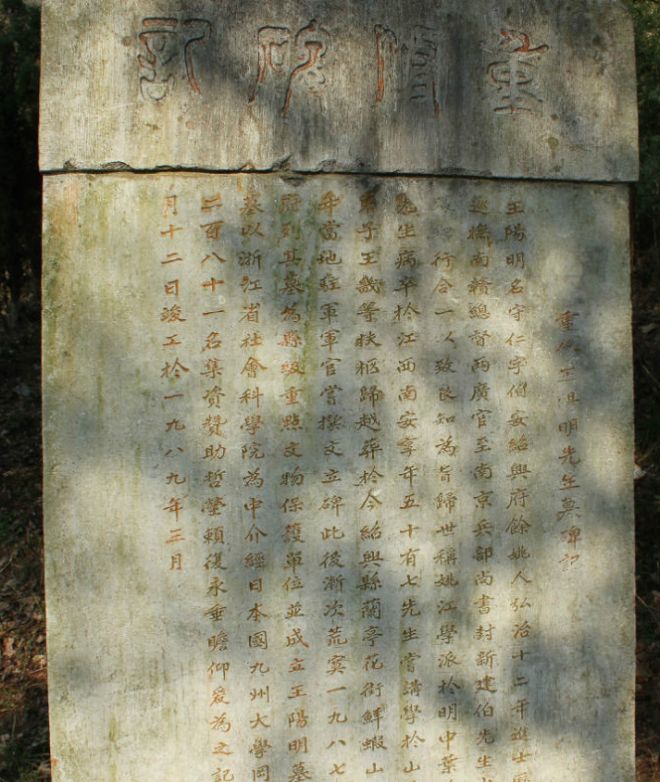 重修碑記
重修王陽明先生墓碑記
王陽明名守仁字伯安紹興府餘姚人弘治十二年進士
巡撫南贛總督兩廣官至南京兵部尚書封新建伯先生
行合一以致良知為旨歸世稱姚江學派於明中葉
先生病卒於江西南安享年五十有七先生嘗講學於山
弟子王畿等扶柩歸越葬於今紹興縣蘭亭花街鮮蝦山
年當地駐軍軍官嘗撰文立碑此後漸次荒寞一九八七
府列其墓為縣級重點文物保護單位並成立王陽明墓
墓以浙江省社會科學院為中介經日本國九州大學岡
二百八十一名集資贊助哲塋賴復永垂瞻仰爰為之記
月十二日竣工於一九八九年三月